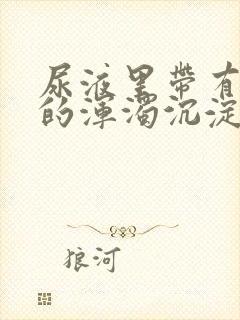 尿液里带有
的浑浊沉淀
狼河